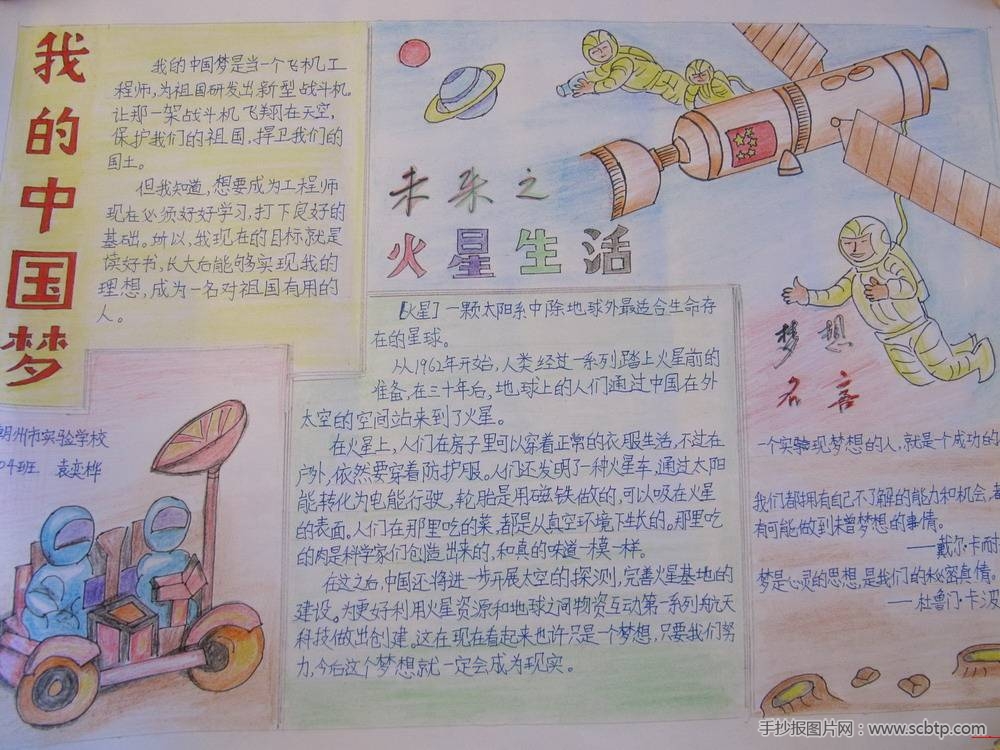 我的中国梦
我的中国梦是当一个飞机工
程师,为祖国研发出新型战斗机
让那一架战斗机飞翔在天空,
保护我们的祖国,捍卫我们的
国土。
但我知道,想要成为工程师
现在必须好好学习,打下良好的
基础。所以,我现在的目标就是
读好书,长大后能够实现我的
理想,成为一名对祖国有用的
人。
州市实验学校
04班 袁奕桦
未来之
火星生活
【火星】一颗太阳系中除地球外最适合生命存
在的星球。
从1962年开始,人类经过一系列踏上火星前的
准备,在三十年后,地球上的人们通过中国在外
太空的空间站来到了火星。
在火星上,人们在房子里可以穿着正常的衣服生活,不过在
户外,依然要穿着防护服。人们还发明了一种火星车,通过太阳
能转化为电能行驶,轮胎是用磁铁做的,可以吸在火星
的表面。人们在那里吃的菜,都是从真空环境下生长的。那里吃
的肉是科学家们创造出来的,和真的味道一模一样。
在这之后,中国还将进一步开展太空的探测,完善火星基地的
建设。为更好利用火星资源和地球之间物资互动第一系列航天
科技做出创建。这在现在看起来也许只是一个梦想,只要我们努
力,今后这个梦想就一定会成为现实。
梦想
名言
一个实验现梦想的人,就是一个成功的
我们都拥有自己不了解的能力和机会,都
有可能做到未曾梦想的事情。
——戴尔·卡耐
梦是心灵的思想,是我们的秘密真情。
——杜鲁门·卡波
手抄报图片网:www.scbtp.com